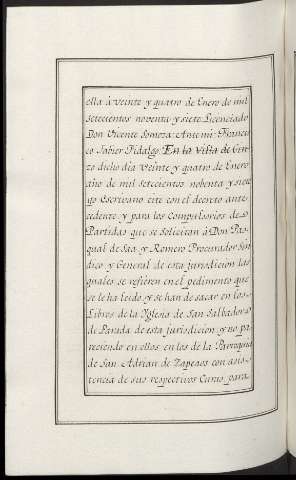 ella á veinte y quatro de Enero de mil
setecientos noventa y siete Licenciado
Don Vicente Somoza: Antemi: Francis
co Jabier Fidalgo. En la Villa de Gin
zo dicho dia veinte y quatro de Enero
año de mil setecientos nobenta y siete
yo Escrivano cite con el decreto ante-
cedente y para los Compulsorios de
Partidas que se solicitan á Don Pas-
qual de Saa y Romero Procurador Sin
dico y General de esta jurisdicion las
quales se refieren en el pedimento que
se le ha leido y se han de sacar en los
Libros de la Yglesia de San Salbador
de Parada de esta jurisdicion y no pa
reciendo en ellos, en los de la Parroquia
de San Adrian de Zapeaos con asis
tencia de sus respectivos Curas para